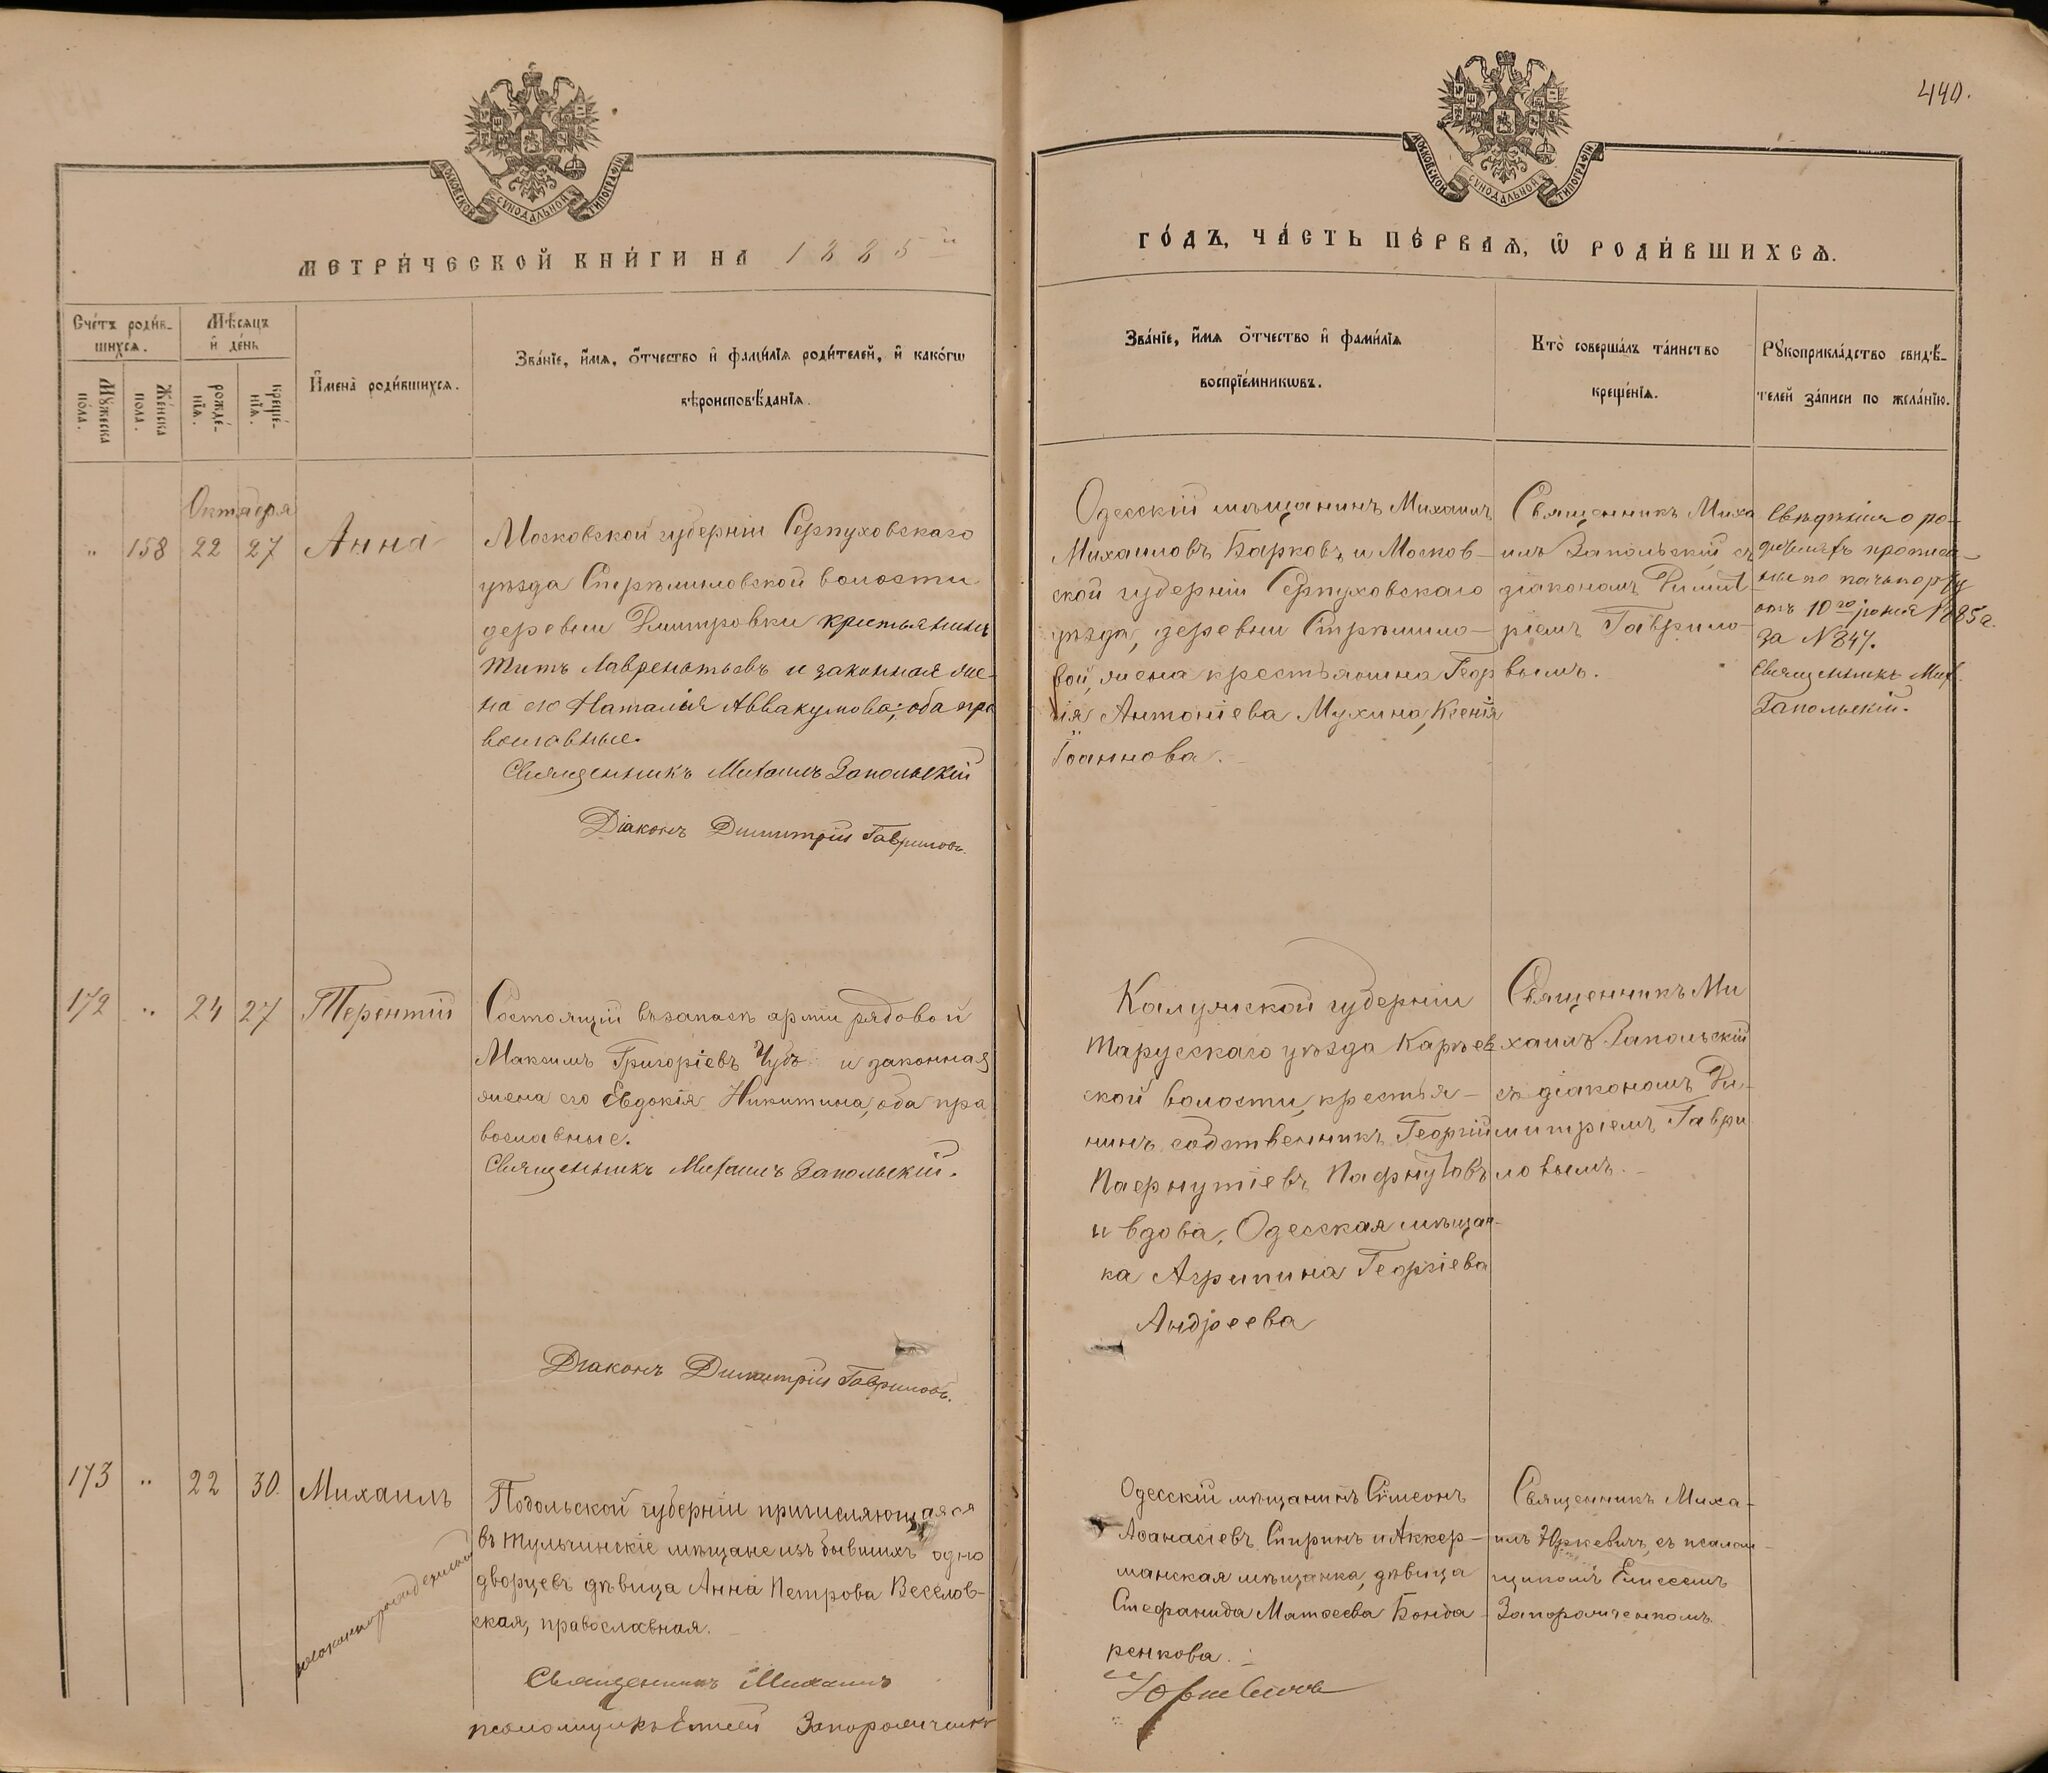 440.
МОСКОВСКОЙ СѴНОДАЛЬНОЙ ТИПОГРАФІИ
МОСКОВСКОЙ СѴНОДАЛЬНОЙ ТИПОГРАФІИ
МЕТРИ́ЧЕСКОЙ КНИ́ГИ НА 1885й
ГО́ДЪ, ЧА́СТЬ ПЕ́РВАѦ, Ѡ҆ РОДИ́ВШИХСѦ.
Сче́тъ роди́в-
шихсѧ.
Мꙋ́жеска
по́ла.
Же́нска
пола.
Мѣ́сѧцъ
и҆ де́нь
рожде́-
нїѧ.
креще́-
нїѧ.
И҆мена̀ роди́вшихсѧ.
Зва́нїе, и҆́мѧ, ѻ҆́тчество и҆ фами́лїѧ роди́телей, и҆ како́гѡ
вѣроисповѣ́данїѧ.
Зва́нїе, и҆́мѧ ѻ҆́тчество и҆ фами́лїѧ
воспрїе́мникѡвъ.
Кто̀ соверша́лъ та́инство
креще́нїѧ.
Рꙋкоприкла́дство свидѣ́-
телей за́писи по жела́нїю.
Октября
„ 158 22 27 Анна
Московской губерніи Серпуховскаго
уѣзда Стрѣмиловской волости
деревни Дмитровки крестьянинъ
Титъ Лаврентьевъ и законная же-
на его Наталія Аввакумова; оба пра
вославные.
Священникъ Михаилъ Запольскій
Діаконъ Димитрій Гавриловъ.
Одесскій мѣщанинъ Михаилъ
Михаиловъ Барковъ и Москов-
ской губерніи Серпуховскаго
уѣзда, деревни Стрѣмило-
вой, жена крестьянина Геор
гія Антоніева Мухина, Ксенія
Іоаннова.
Священникъ Миха
илъ Запольскій съ
діакономъ Димит
ріемъ Гаврило-
вымъ.
Свѣдѣнія о ро-
дителяхъ прописа-
ны по пачпорту
отъ 10го іюня 1885г.
за №847.
Священникъ Мих.
Запольскій.
172 „ 24 27 Терентій
Состоящій въ запасѣ арміи рядовой
Максимъ Григоріевъ Чубъ и законная
жена его Евдокія Никитина, оба пра
вославные.
Священникъ Михаилъ Запольскій.
Діаконъ Димитрій Гавриловъ.
Калужской губерніи
Тарусскаго уѣзда Карѣев
ской волости, крестья-
нинъ собственникъ Георгій
Пафнутіевъ Пафнутовъ
и вдова, Одесская мѣщан-
ка Агрипина Георгіева
Андреева
Священникъ Ми
хаилъ Запольскій
съ діакономъ Ди-
митріемъ Гаври
ловымъ.
173 „ 22 30. Михаилъ
незаконнорожденный
Подольской губерніи причисляющаяся
въ Тульчинскіе мѣщане изъ бывшихъ одно
дворцевъ дѣвица Анна Петрова Веселов-
ская, православная.
Священникъ Михаилъ
псаломщикъ Елисей Запорожченко
Одесскій мѣщанинъ Симеонъ
Аѳанасіевъ Спиринъ и Аккер-
манская мѣщанка, дѣвица
Стефанида Матѳеева Бонда-
ренкова.
Юркевичъ
Священникъ Миха-
илъ Юркевичъ, съ псалом-
щикомъ Елисеемъ
Запорожченкомъ.